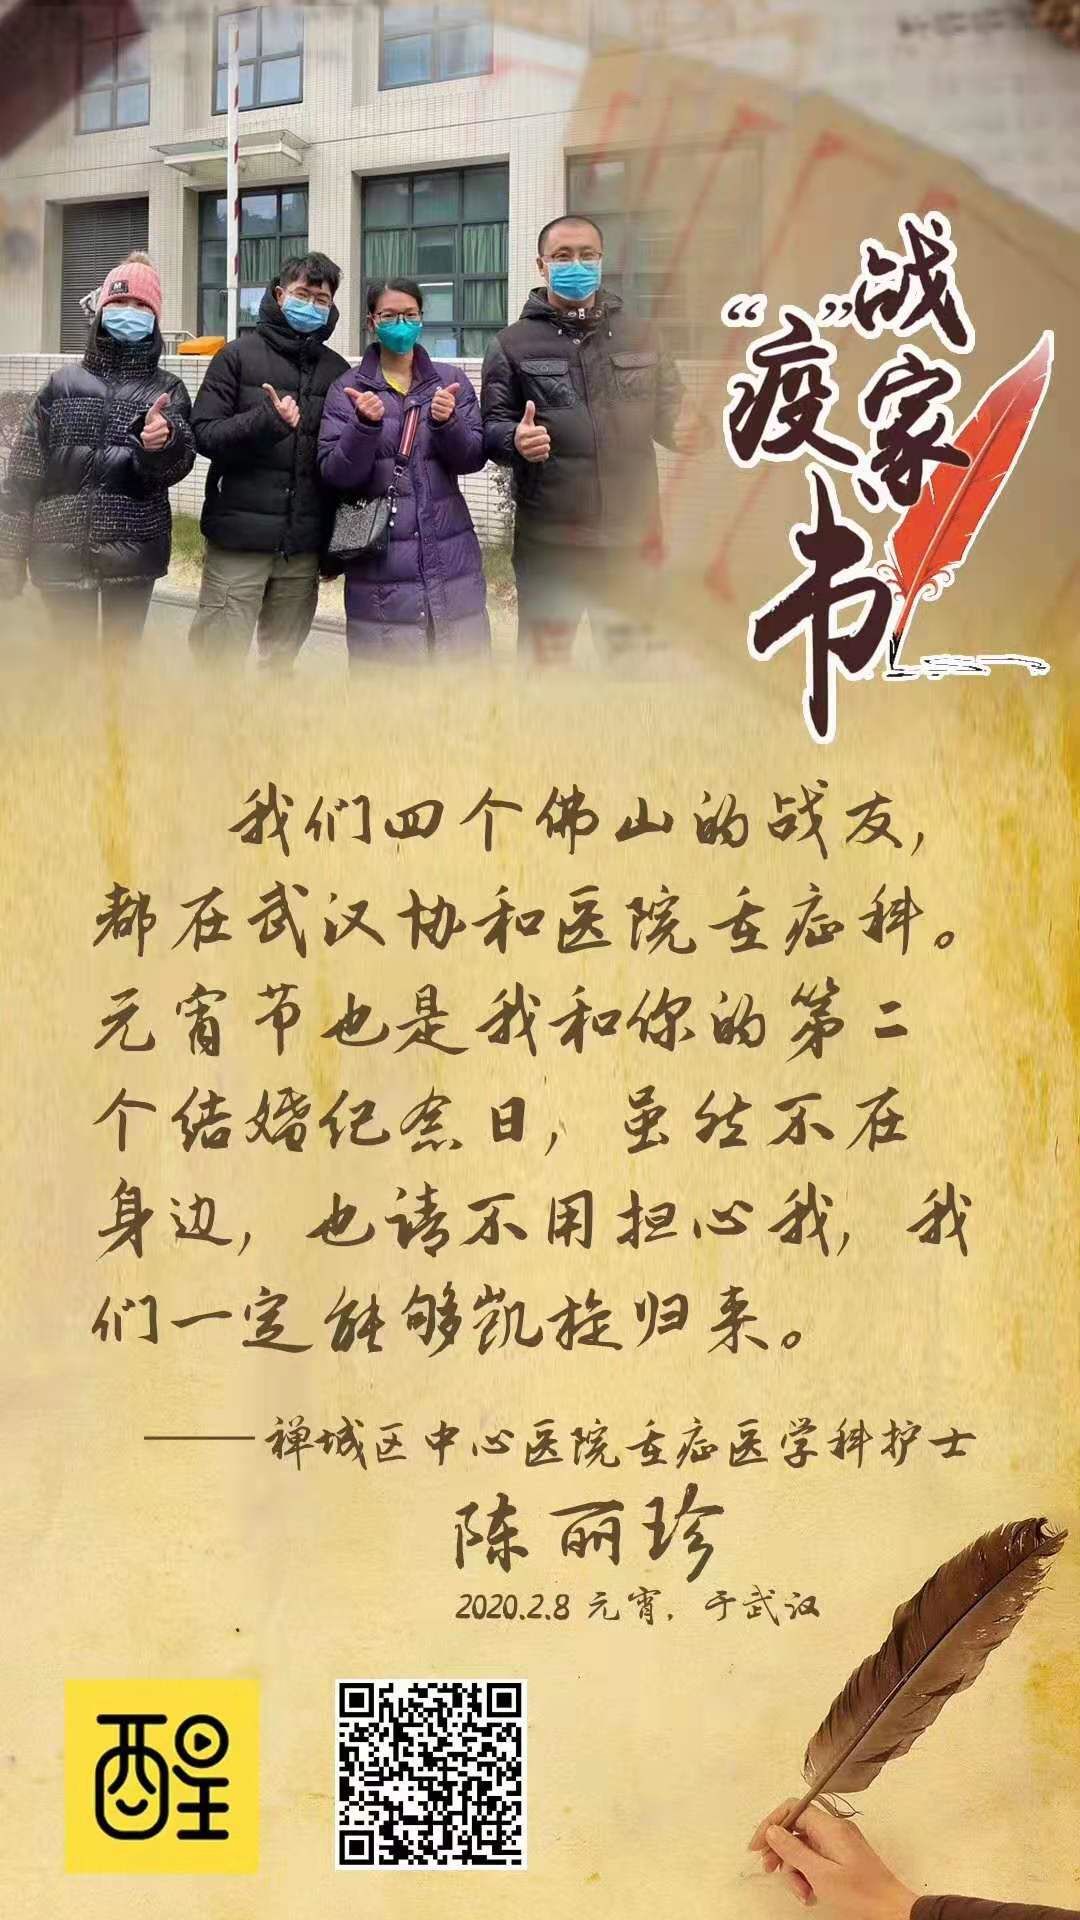 战“疫”家书
我们四个佛山的战友，
都在武汉协和医院重症科。
元宵节也是我和你的第二
个结婚纪念日，虽然不在
身边，也请不用担心我，我
们一定能够凯旋归来。
——禅城区中心医院重症医学科护士
陈丽珍
2020.2.8 元宵，于武汉
醒